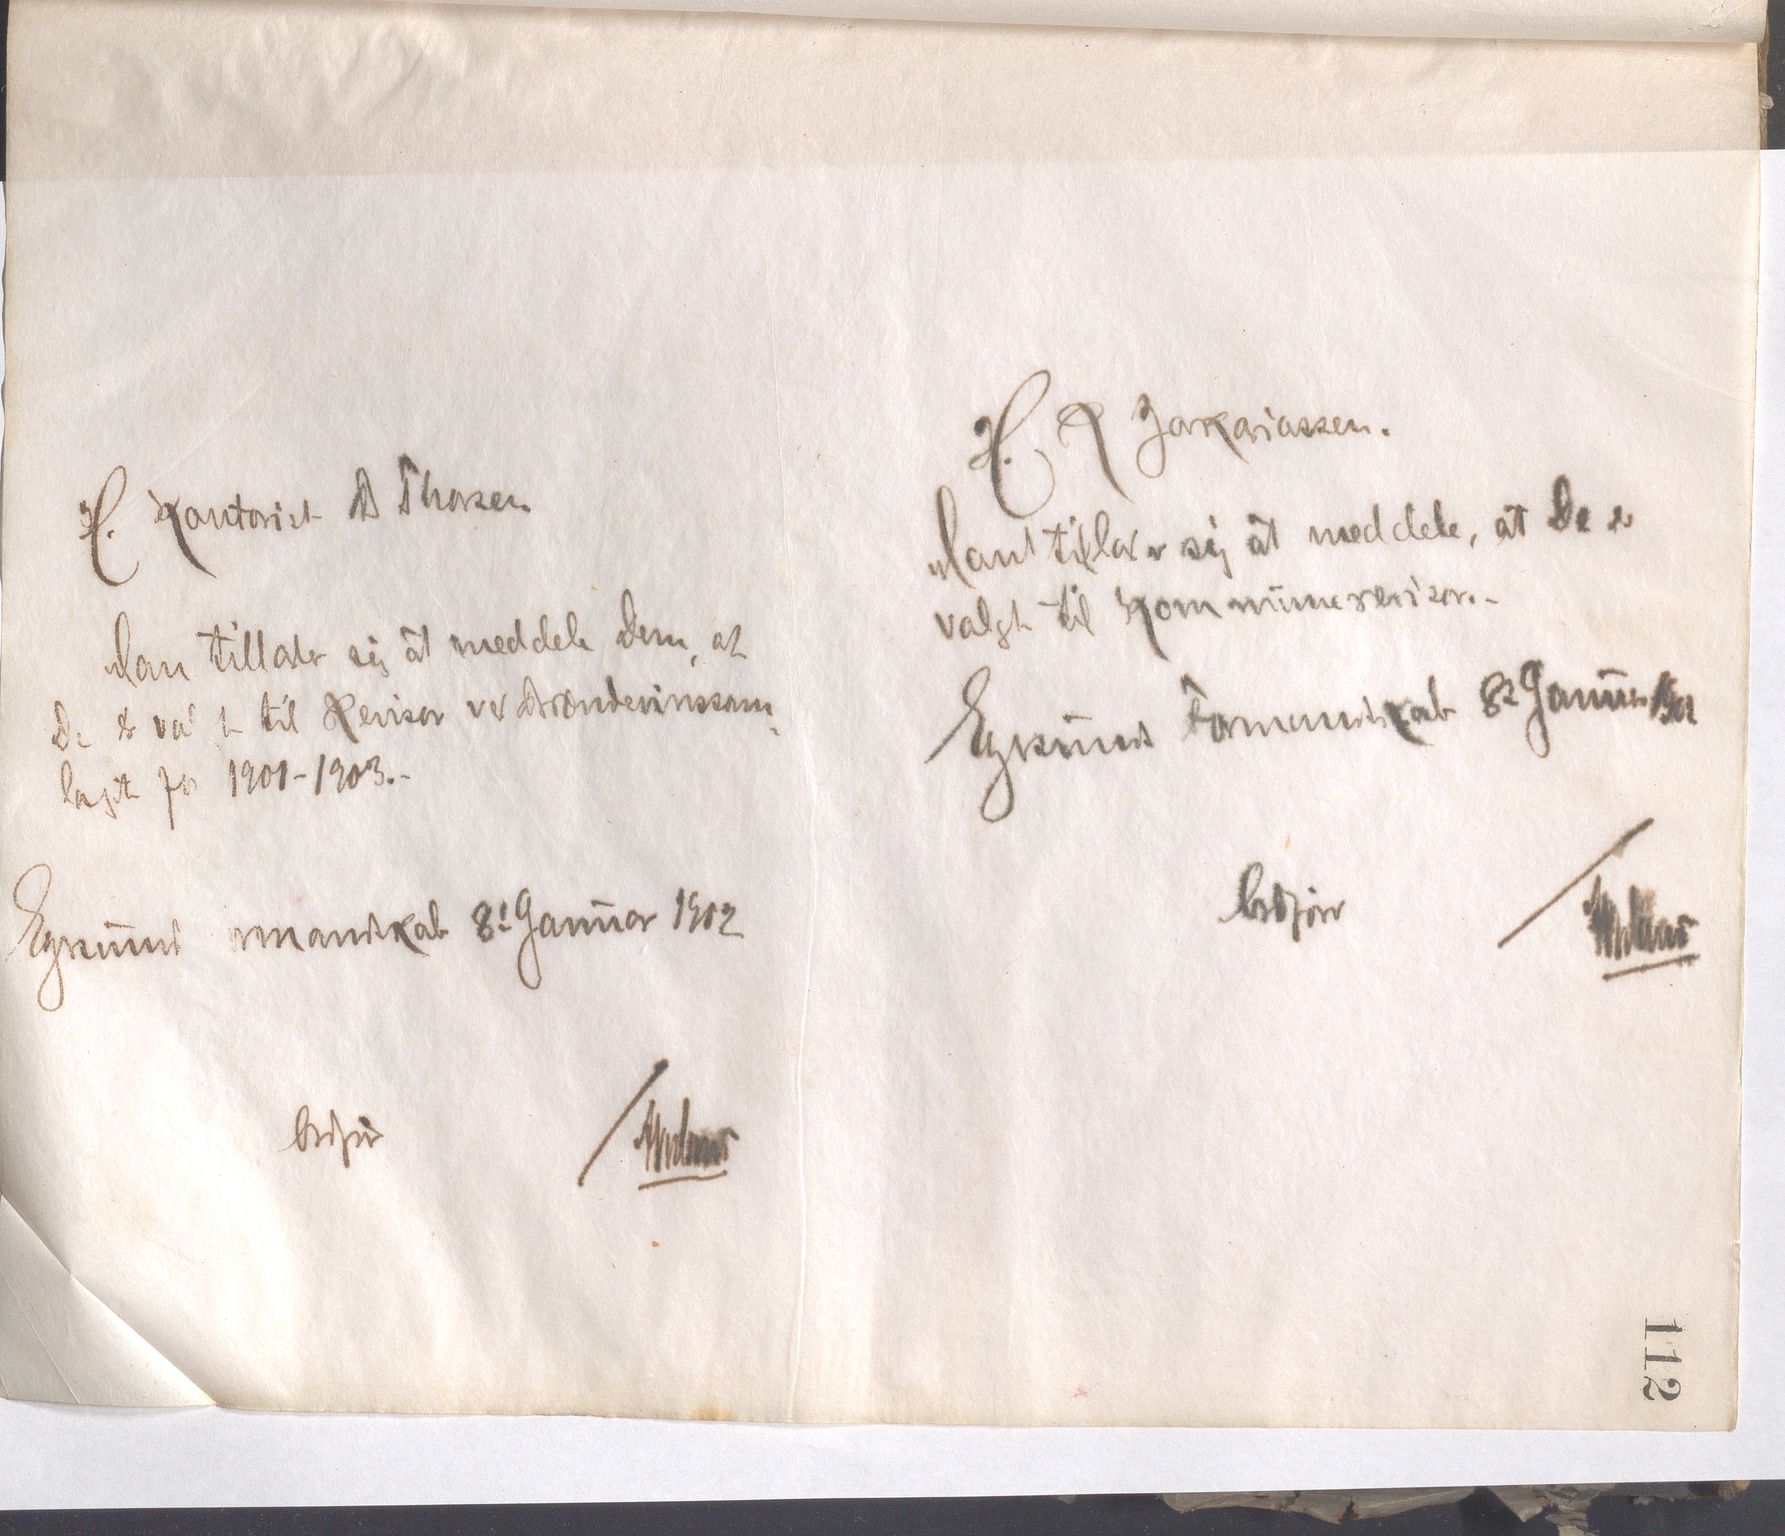 H. Kontorist A Thorsen
Man tillader sig at meddele Dem, at
De er valgt til Revisor ved Brændevinssam-
laget for 1901-1903.-
Egersund Formandskab 8d Januar 1902
ærbødigst
H. R Zakariassen.
Man tillader sig at meddele, at De er
valgt til Kommunerevisor.-
Egersund Formandskab 8d Januar 1902
112